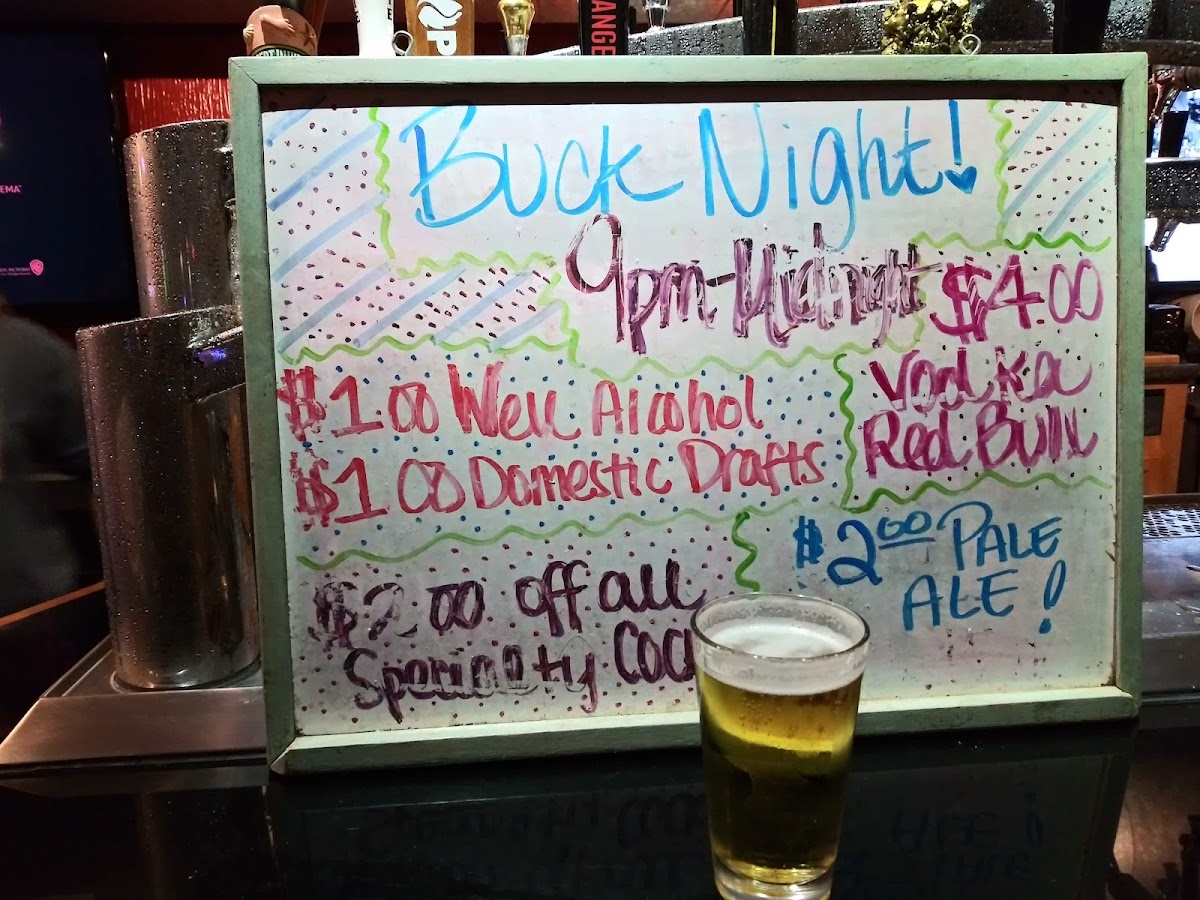 Buck Night!
9pm-Midnight
$4.00
Vodka
Red Bull
$1.00 Well Alcohol
$1.00 Domestic Drafts
$2.00 PALE
ALE!
$2.00 off all
Specialty
ANGE
EMA